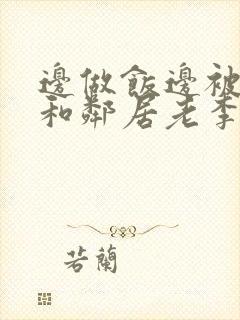 邊做飯邊被
和鄰居老李
若蘭